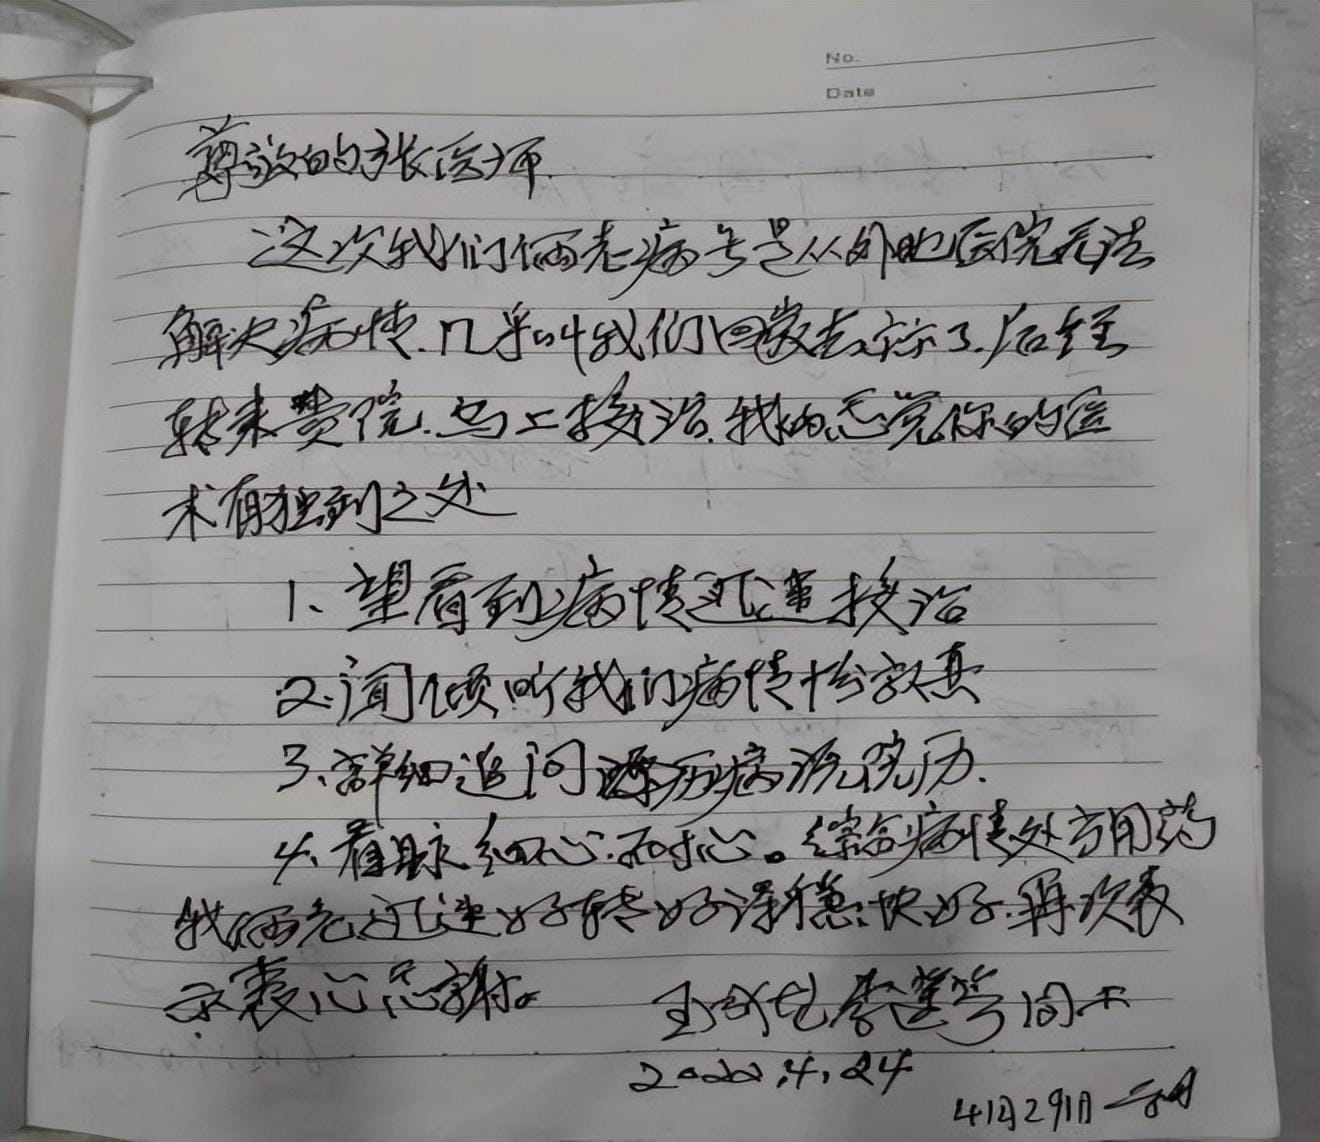 No.
Date
尊敬的张医师.
这次我们俩老病号是从外地医院无法
解决病情.几乎叫我们回家去了.后经
转来贵院.马上接治.我俩感觉你的医
术有独到之处
1、望看到病情迅速接治
2.闻倾听我们病情十分认真
3、详细追问 历病
4、看脉细心.耐心。综合病情处方用药
我俩老迅速好转好得稳:快好.再次表
示衷心感谢。
李 同
2022.4.24
4月29日